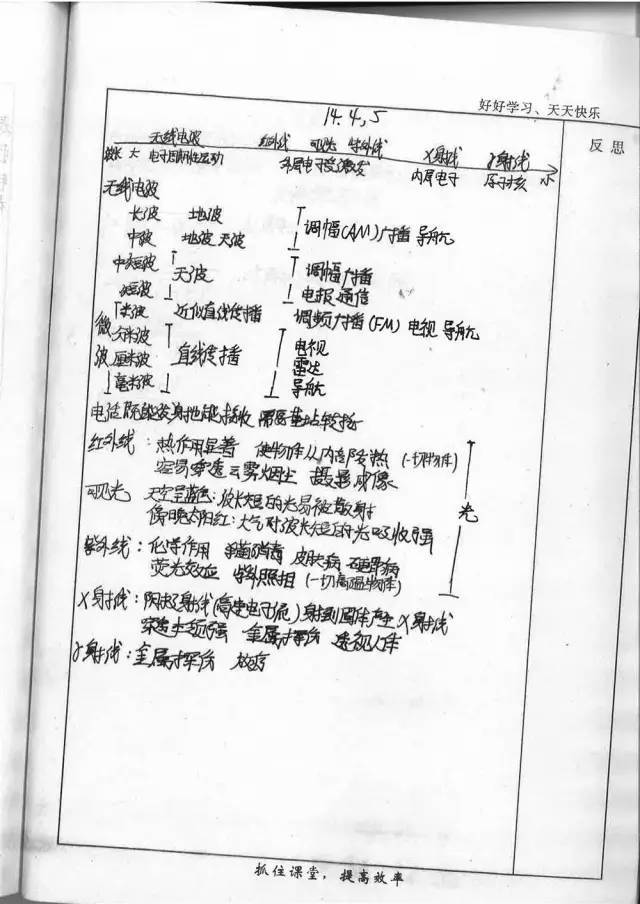 好好学习、天天快乐
14.4,5
反思
无线电波 红外线 可见光 紫外线 X射线 γ射线
波长 大 电子周期性运动 外层电子受激发 内层电子 原子核 小
无线电波
长波 地波
中波 地波 天波 调幅(AM)广播 导航
中短波 天波 调幅广播
短波 电报通信
微波 米波 近似直线传播 调频广播(FM) 电视 导航
分米波 电视
厘米波 直线传播 雷达
毫米波 导航
电话既能发射也能接收 需要基站转播
红外线：热作用显著 使物体从内部发热 (一切物体)
容易穿透云雾烟尘 摄影成像
可见光 天空呈蓝色：波长短的光易被散射 光
傍晚太阳红：大气对波长短的光吸收强
紫外线：化学作用 杀菌消毒 皮肤病 硬骨病
荧光效应 紫外照相 (一切高温物体)
X射线：阴极射线(高速电子流)射到固体产生X射线
穿透本领强 金属探伤 透视人体
γ射线：金属探伤 放疗
抓住课堂，提高效率